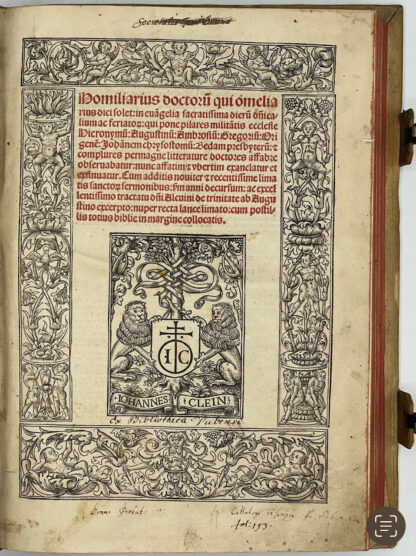 Societatis
Homiliarius doctorū qui ōmelia
rius dici solet: in euāgelia sacratissima dierū dn̄ica
lium ac feriatoꝝ: qui pone pilares militātis ecclesie
Hieronymū: Augustinū: Ambrosiū: Gregoriū: Ori
genē: Joħanem chrysostomū: Bedam presbyterū: ⁊
complures permagne litterature doctores affabre
obseruabatur: nunc affatim ⁊ vbertim exanclatur et
exsinuatur. Cum additis nouiter ⁊ recentissime lima
tis sanctoꝝ sermonibus: ẜm anni decursum: ac excel
lentissimo tractatu dn̄i Alcuini de trinitate ab Augu
stino excerpto: nuper recta lance limato: cum postil
lis totius biblie in margine collocatis.
I C
IOHANNES CLEIN
ex Bibliotheca
fol: 193.